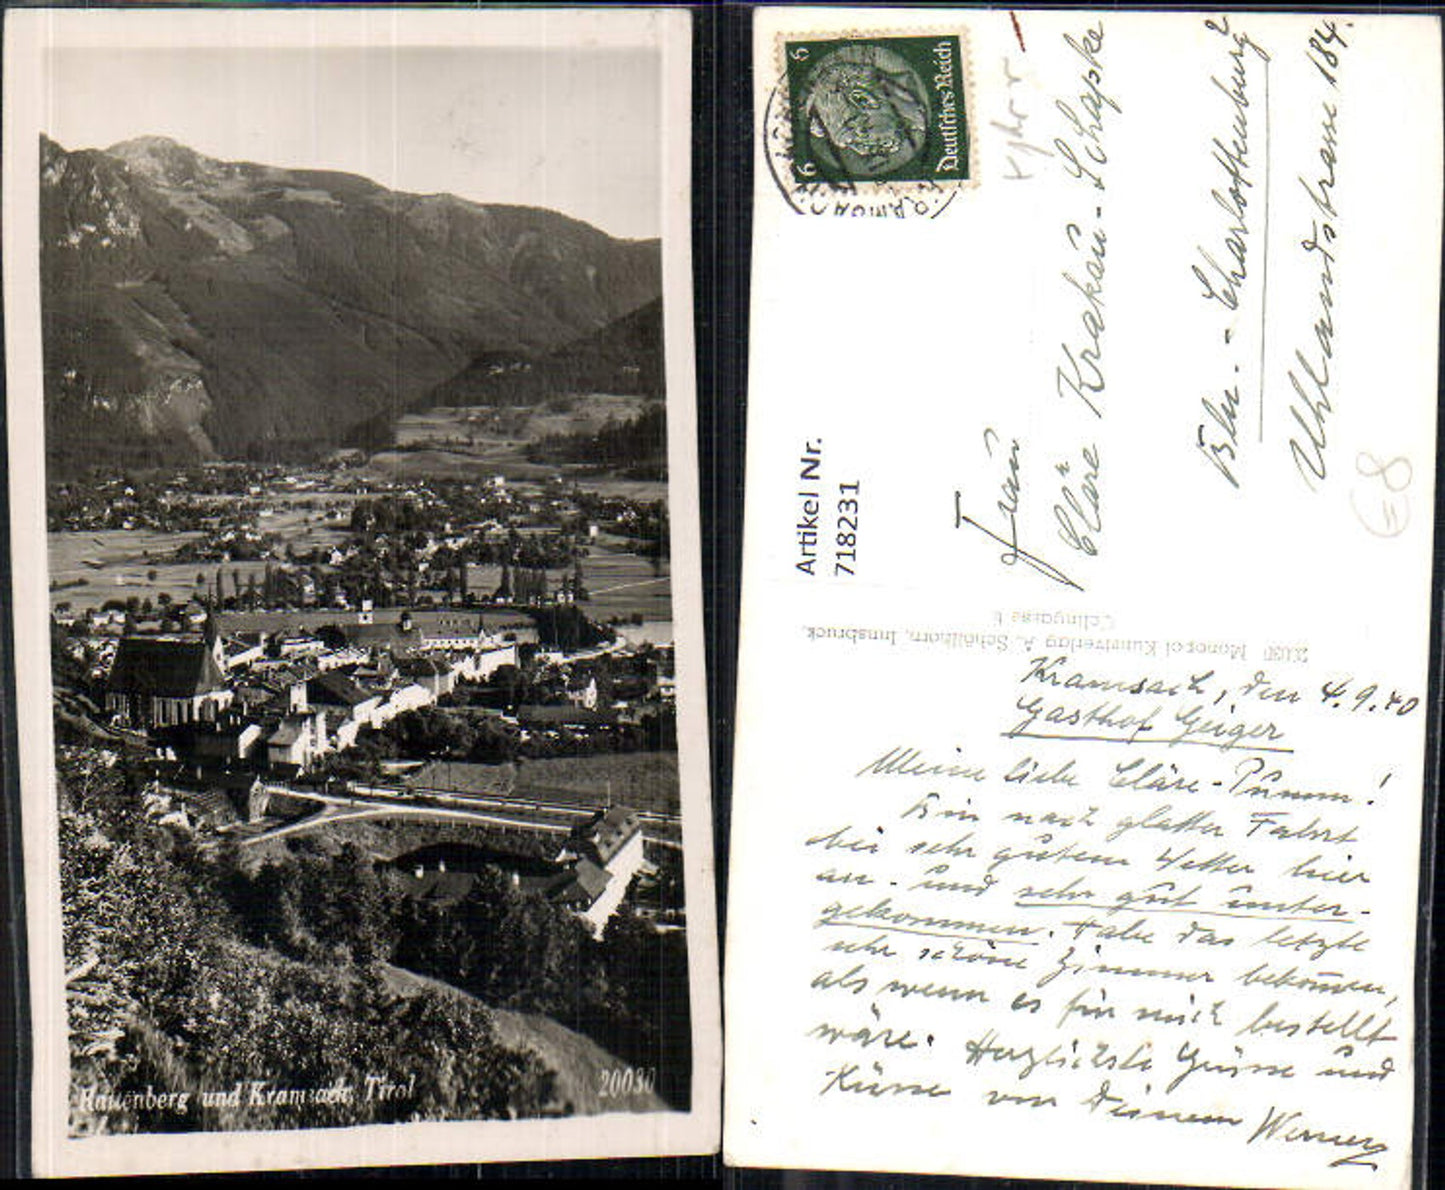 Rattenberg und Kramsach, Tirol
20030
6
6
Deutsches Reich
Artikel Nr.
718231
Frau
Cläre Krakau-Schapke
Bln.-Charlottenburg 2
Uhlandstrasse 184.
20030 Monopol Kunstverlag A. Schöllhorn, Innsbruck,
Kramsach, den 4.9.40
Gasthof Geiger
Meine liebe Cläre-Pumm!
Bin nach glatter Fahrt
bei sehr gutem Wetter hier
an- und sehr gut unter-
gekommen. Habe das letzte
sehr schöne Zimmer bekommen,
als wenn es für mich bestellt
wäre. Herzlichste Grüsse und
Küsse von Deinem Werner